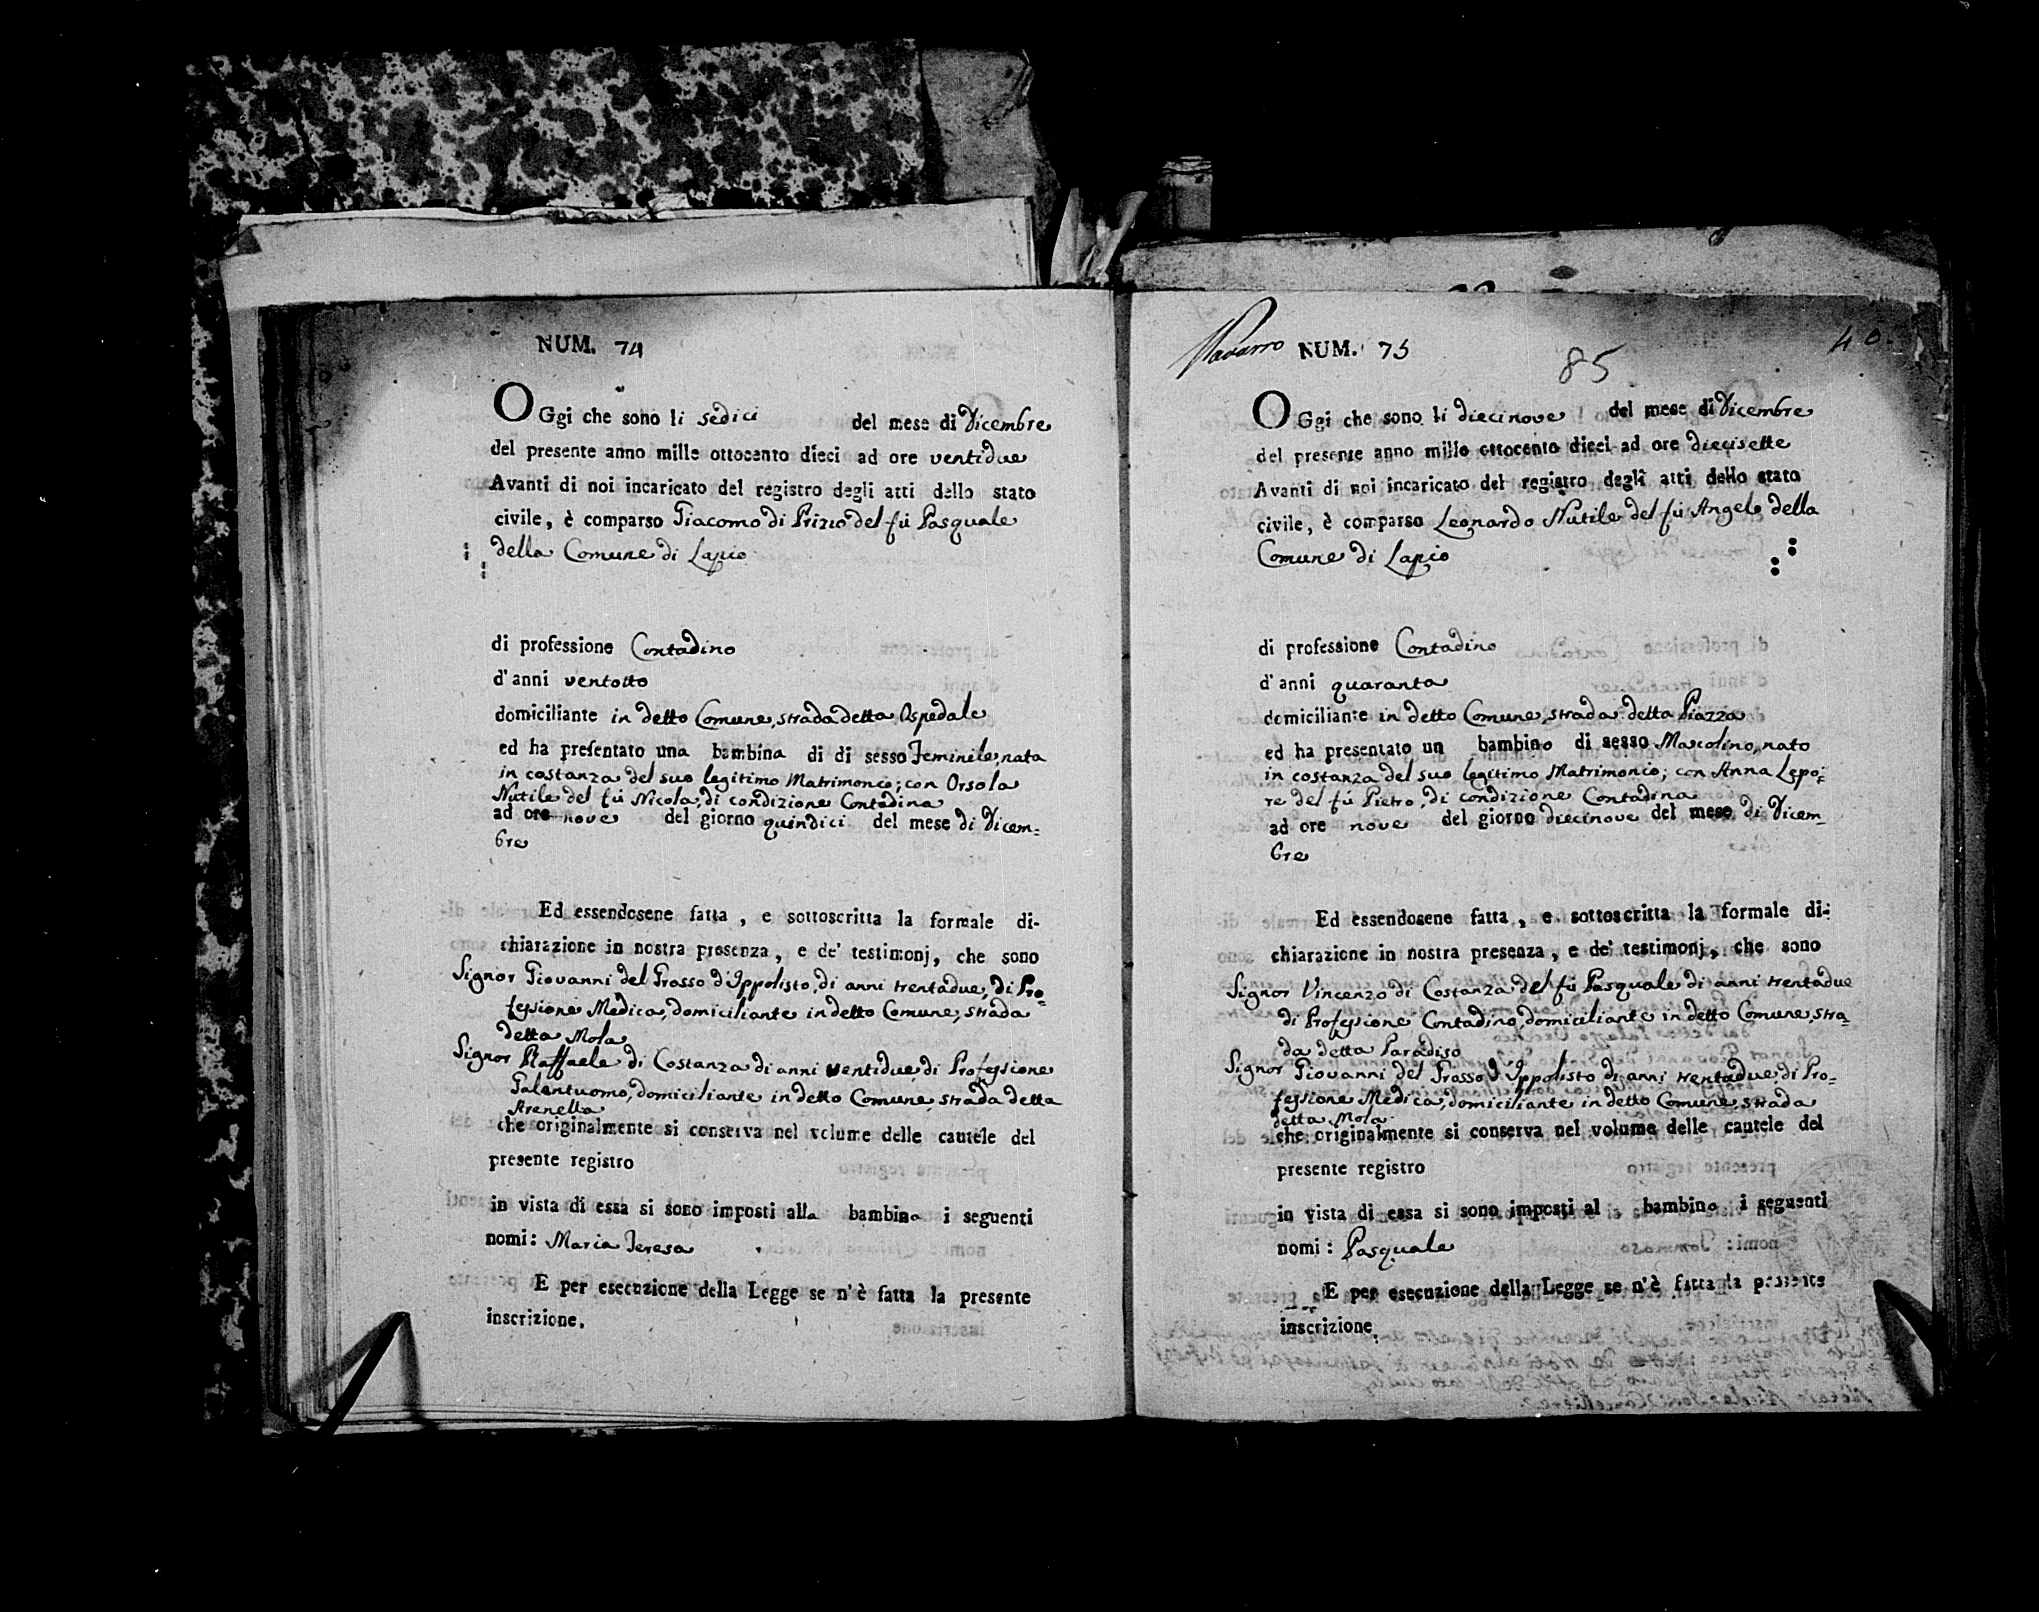 NUM. 74
OGgi che sono li sedici del mese di Dicembre
del presente anno mille ottocento dieci ad ore ventidue
Avanti di noi incaricato del registro degli atti dello stato
civile, è comparso Giacomo di Prizio del fù Pasquale
della Comune di Lapio
di professione Contadino
d'anni ventotto
domiciliante in detto Comune, strada detta Ospedale
ed ha presentato una bambina di di sesso Feminile, nata
in costanza del suo legitimo Matrimonio; con Orsola
Nutile del fù Nicola, di condizione Contadina
ad ore nove del giorno quindici del mese di Dicem=
bre
Ed essendosene fatta, e sottoscritta la formale di-
chiarazione in nostra presenza, e de' testimonj, che sono
Signor Giovanni del Grasso d'Ippolisto, di anni trentadue, di Pro=
fessione Medica, domiciliante in detto Comune, strada
detta Mola
Signor Raffaele di Costanza di anni ventidue, di Professione
Galantuomo, domiciliante in detto Comune, strada detta
Arenella
che originalmente si conserva nel volume delle cautele del
presente registro
in vista di essa si sono imposti alla bambina i seguenti
nomi: Maria Teresa
E per esecuzione della Legge se n'è fatta la presente
inscrizione.
Navarro NUM. 75
85
40.
OGgi che sono li diecinove del mese di Dicembre
del presente anno mille ottocento dieci ad ore diecisette
Avanti di noi incaricato del registro degli atti dello stato
civile, è comparso Leonardo Nutile del fù Angelo della
Comune di Lapio
di professione Contadino
d'anni quaranta
domiciliante in detto Comune, strada detta Piazza
ed ha presentato un bambino di sesso Mascolino, nato
in costanza del suo legitimo Matrimonio; con Anna Lepo=
re del fù Pietro, di condizione Contadina
ad ore nove del giorno diecinove del mese di Dicem=
bre
Ed essendosene fatta, e sottoscritta la formale di-
chiarazione in nostra presenza, e de' testimonj, che sono
Signor Vincenzo di Costanza del fù Pasquale di anni trentadue
di Professione Contadino, domiciliante in detto Comune, stra=
da detta Paradiso
Signor Giovanni del Grasso d'Ippolisto di anni trentadue, di Pro=
fessione Medica, domiciliante in detto Comune, strada
detta Mola
che originalmente si conserva nel volume delle cautele del
presente registro
in vista di essa si sono imposti al bambino i seguenti
nomi: Pasquale
E per esecuzione della Legge se n'è fatta la presente
inscrizione.